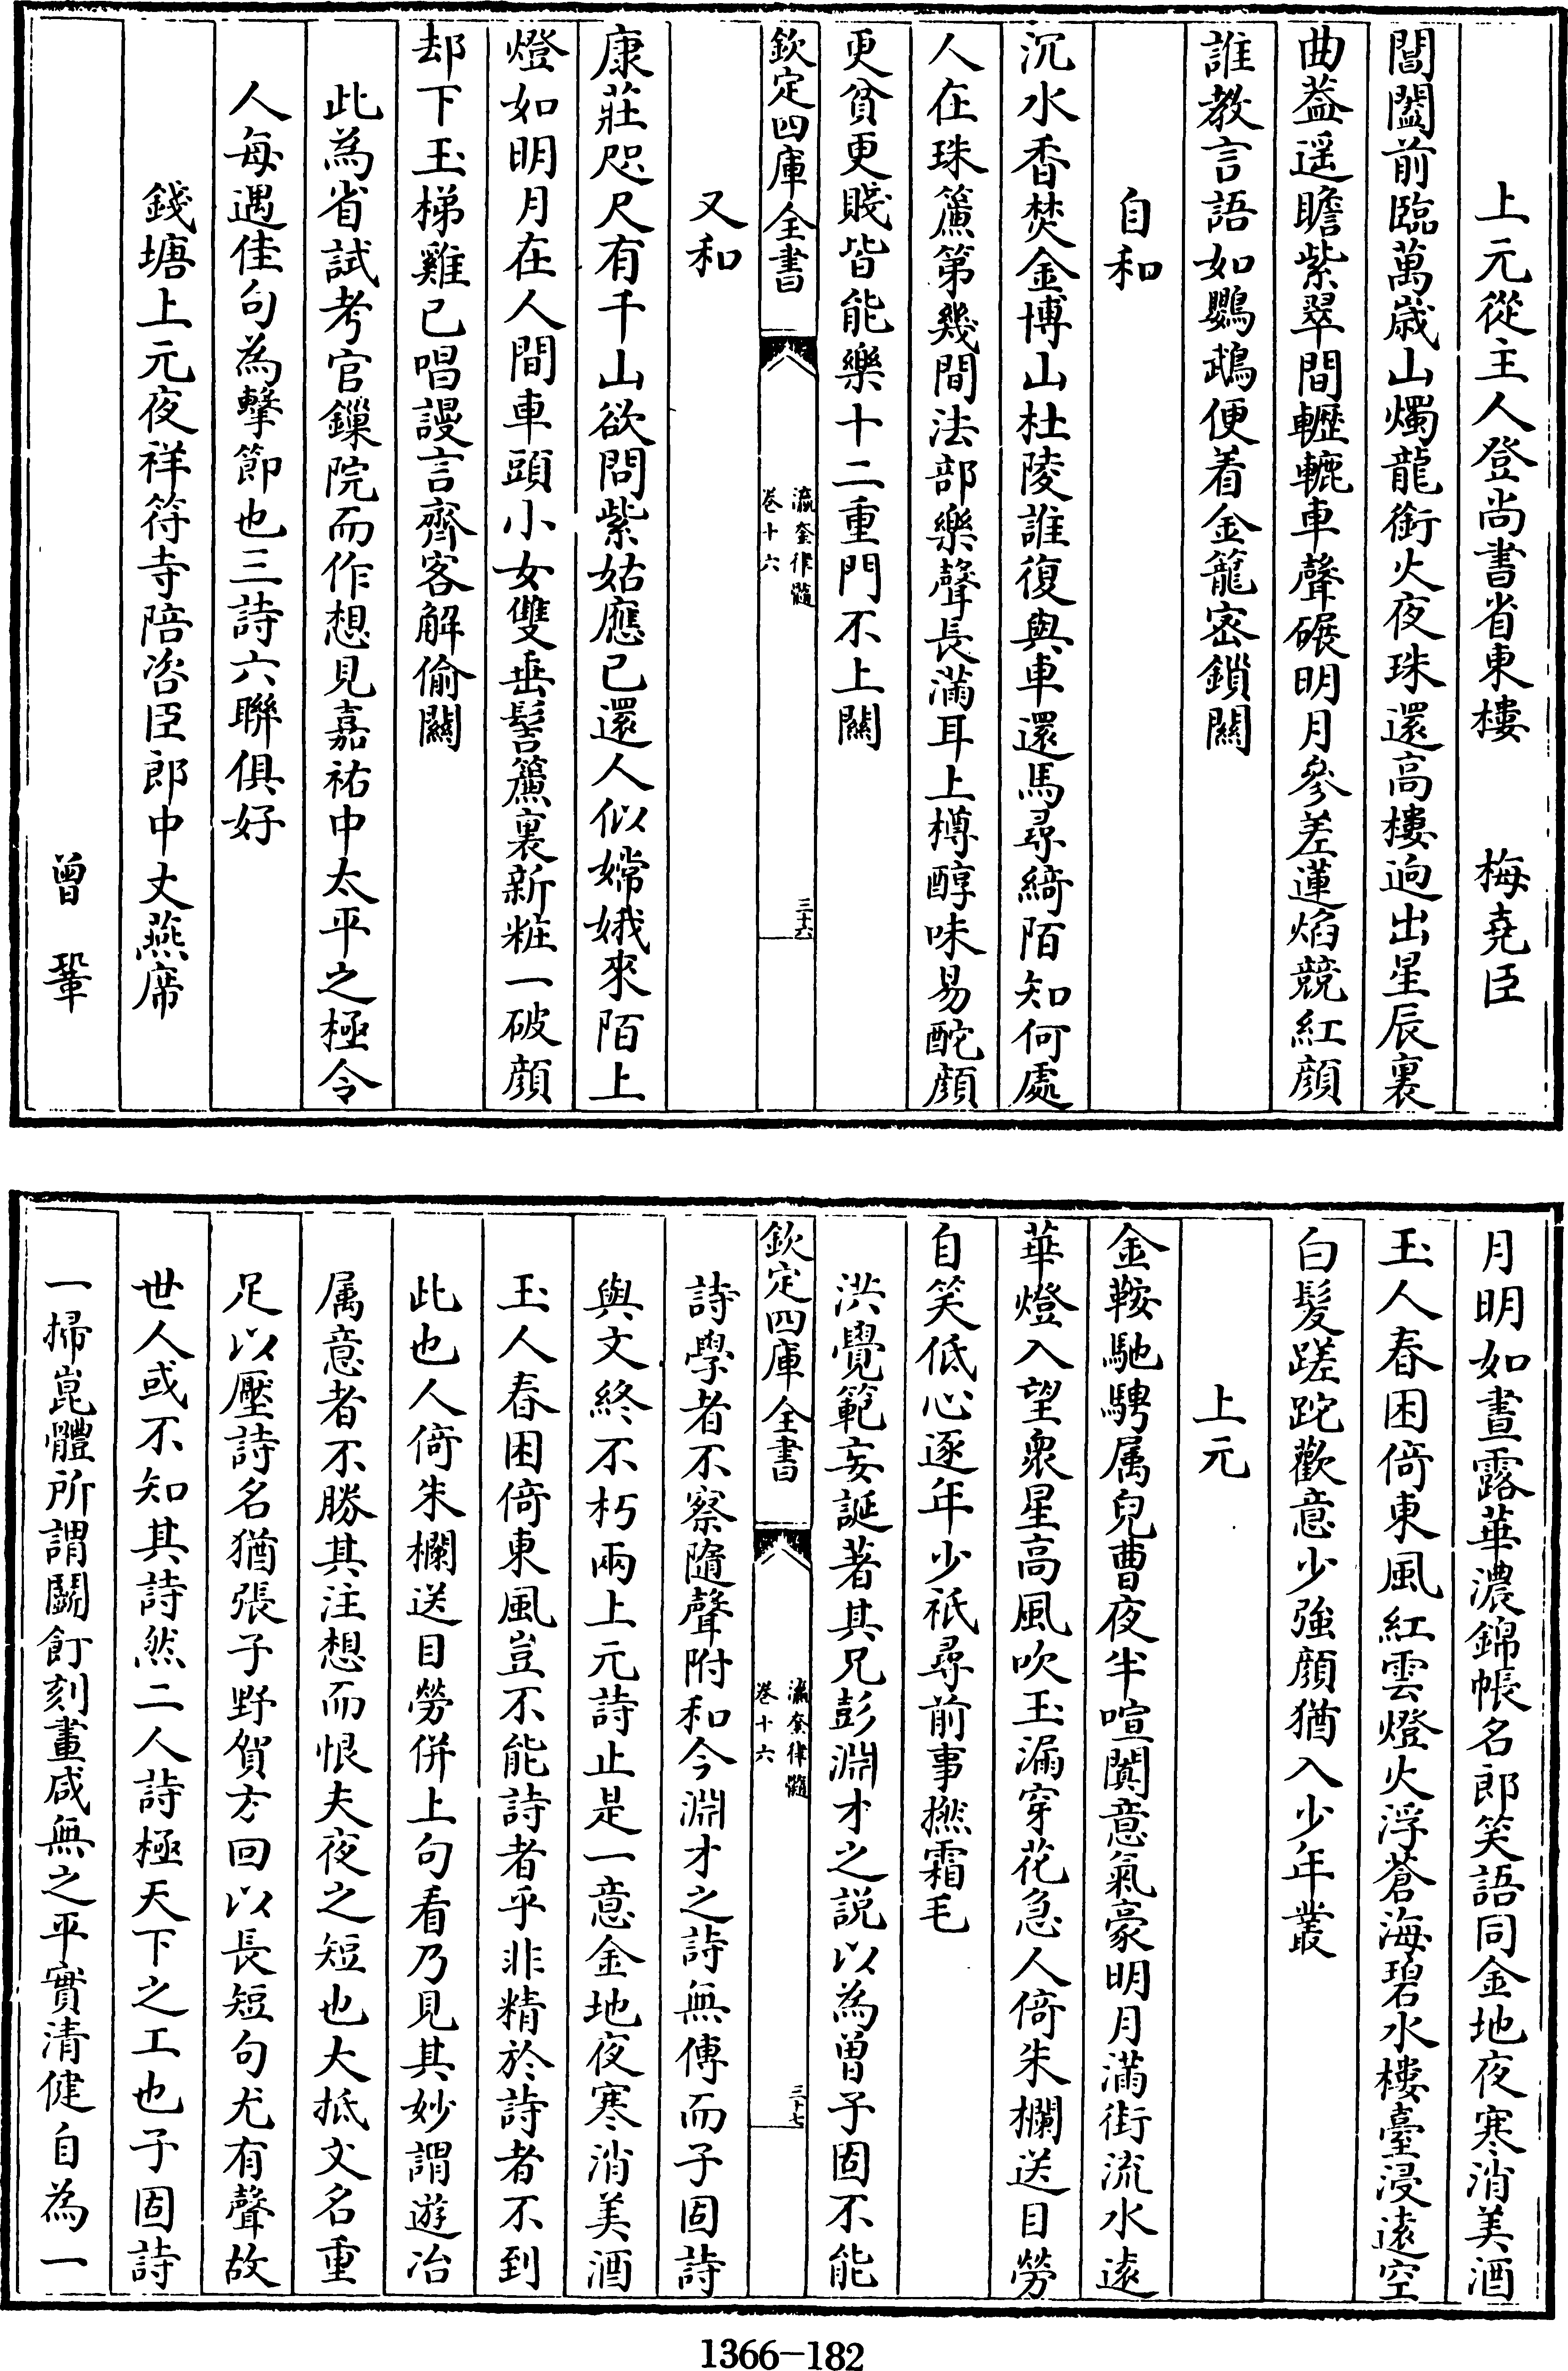 上元從主人登尚書省東樓　梅堯臣
閶闔前臨萬歳山燭龍銜火夜珠還高樓逈出星辰裏
曲葢遥瞻紫翠間轣轆車聲碾明月參差蓮焰競紅顔
誰教言語如鸚鵡便着金籠密鎖關
自和
沉水香焚金博山杜陵誰復與車還馬尋綺陌知何處
人在珠簾第幾間法部樂聲長滿耳上樽醇味易酡顔
更貧更賤皆能樂十二重門不上關
欽定四庫全書
瀛奎律髓
卷十六
三十六
又和
康莊咫尺有千山欲問紫姑應已還人似嫦娥來陌上
燈如明月在人間車頭小女雙垂髻簾裏新粧一破顔
却下玉梯雞已唱謾言齊客解偷關
此為省試考官鏁院而作想見嘉祐中太平之極令
人每遇佳句為擊節也三詩六聯俱好
錢塘上元夜祥符寺陪咨臣郎中丈燕席
曾鞏
月明如晝露華濃錦帳名郎笑語同金地夜寒消美酒
玉人春困倚東風紅雲燈火浮蒼海碧水樓臺浸逺空
白髮蹉跎歡意少強顔猶入少年叢
上元
金鞍馳騁属兒曹夜半喧闐意氣豪明月滿街流水逺
華燈入望衆星高風吹玉漏穿花急人倚朱欄送目勞
自笑低心逐年少祇尋前事撚霜毛
洪覺範妄誕著其兄彭淵才之説以為曾子固不能
欽定四庫全書
瀛奎律髓
卷十六
三十七
詩學者不察隨聲附和今淵才之詩無傳而子固詩
與文終不朽兩上元詩止是一意金地夜寒消美酒
玉人春困倚東風豈不能詩者乎非精於詩者不到
此也人倚朱欄送目勞併上句看乃見其妙謂遊冶
属意者不勝其注想而恨夫夜之短也大抵文名重
足以壓詩名猶張子野賀方回以長短句尤有聲故
世人或不知其詩然二人詩極天下之工也子固詩
一掃崑體所謂餖飣刻畫咸無之平實清健自為一
1366-182